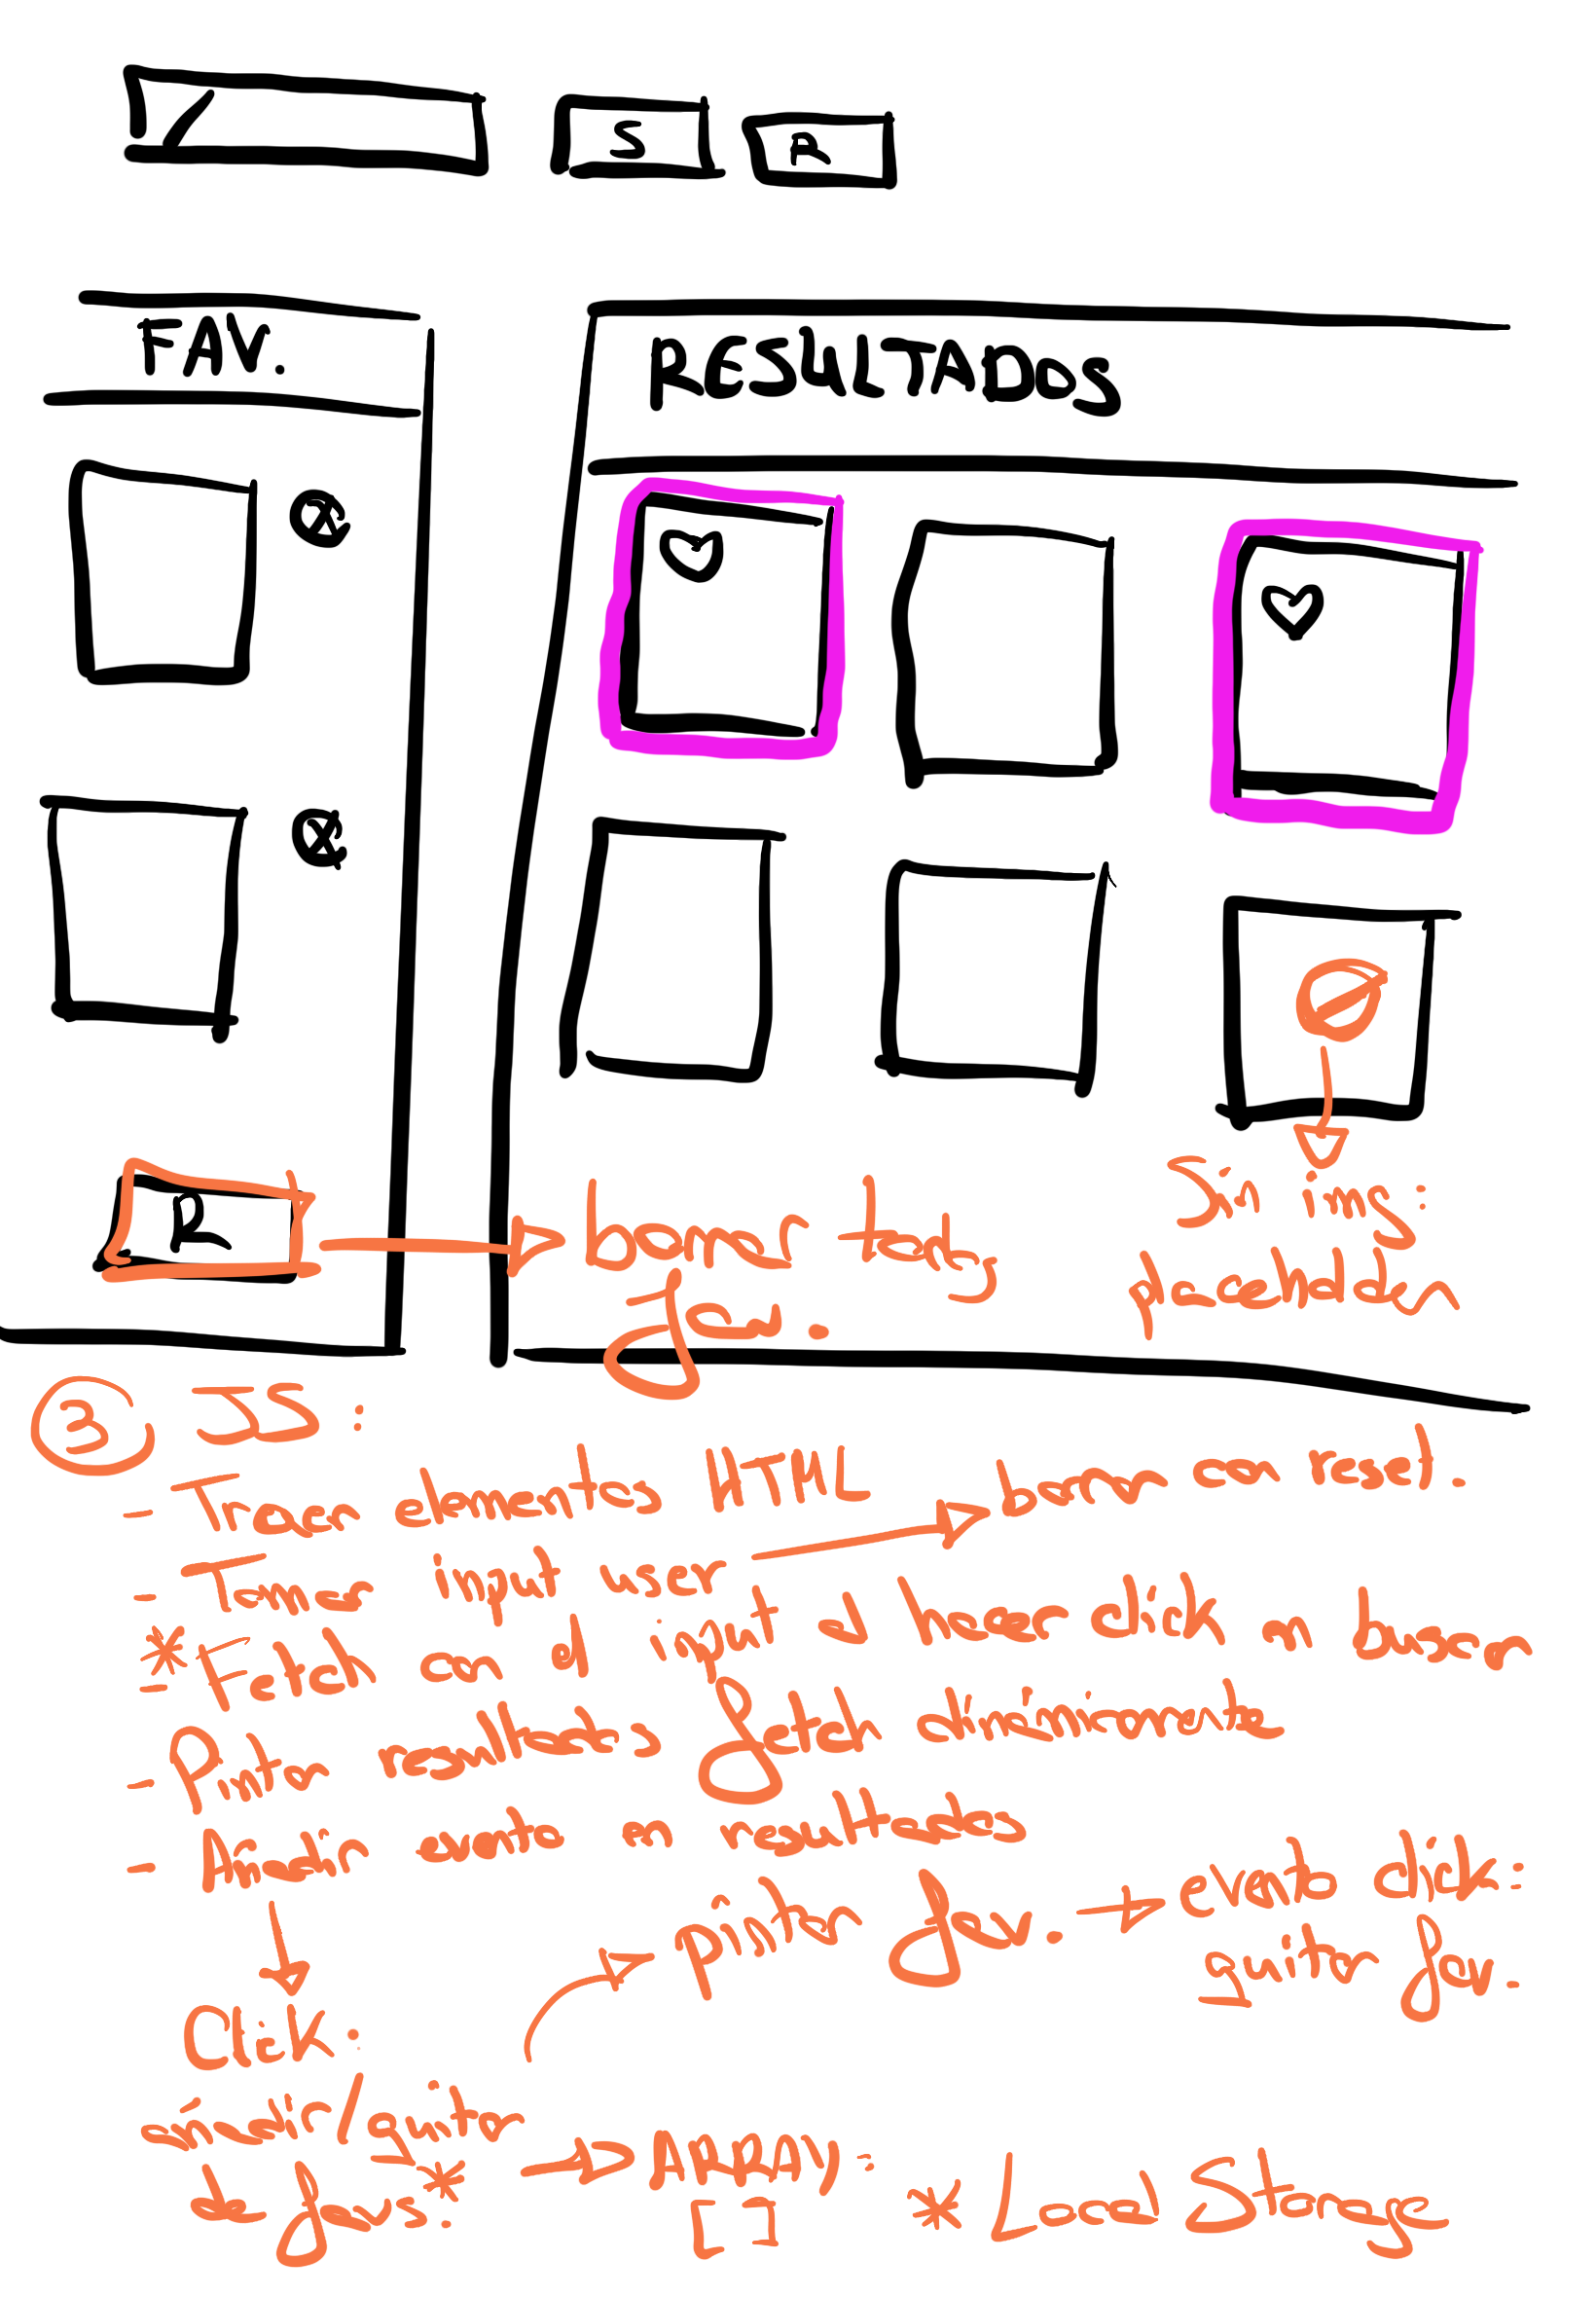 S R
FAV.
RESULTADOS
R
borrar tods
fav.
Sin img:
placeholder
3 JS:
- Traer elementos HTML
- Tomar input user → borrar con reset.
* - Fetch con el input al hacer click en buscar
- Pintar resultados fetch dinámicamente
- Añadir evento en resultados
Click:
añadir/quitar
de favs.*
pintar fav. → evento click:
quitar fav.
→ ARRAY:
[ ]
* Local Storage